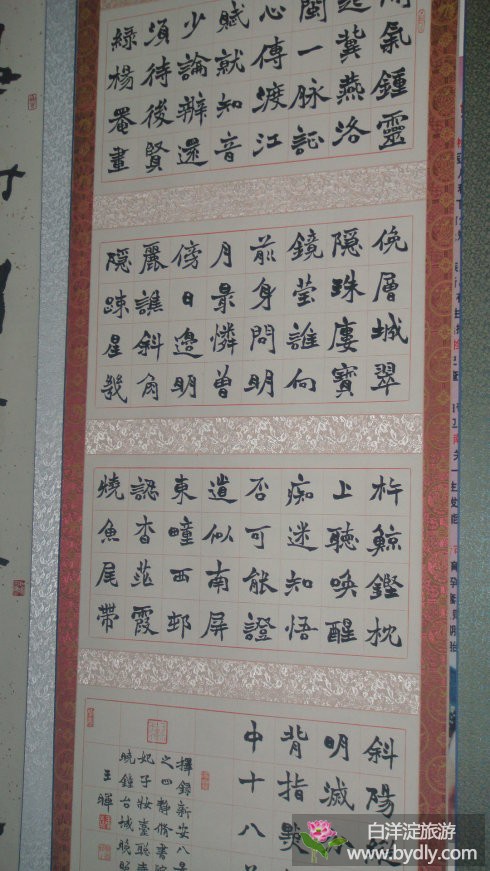 氣鍾靈
冀燕洛
閩一脉
心傳渡江
賦就知音
少論辦還
須待後賢
綠楊菴畫
俛層城翠
隱珠廔寶
鏡瑩誰向
前身問明
月最憐曾
傍日邊明
麗譙斜角
隱疎星幾
杵鯨鏗枕
上聽喚醒
痴迷知悟
否可能證
道似南屏
東疃西邨
認杏花霞
燒魚尾帶
斜陽
明滅
背指點
中十八
擇錄新安八景
之四靜修書院
妃子妝臺聯
曉鐘台城晚照
王暉
白洋淀旅游
www.bydly.com